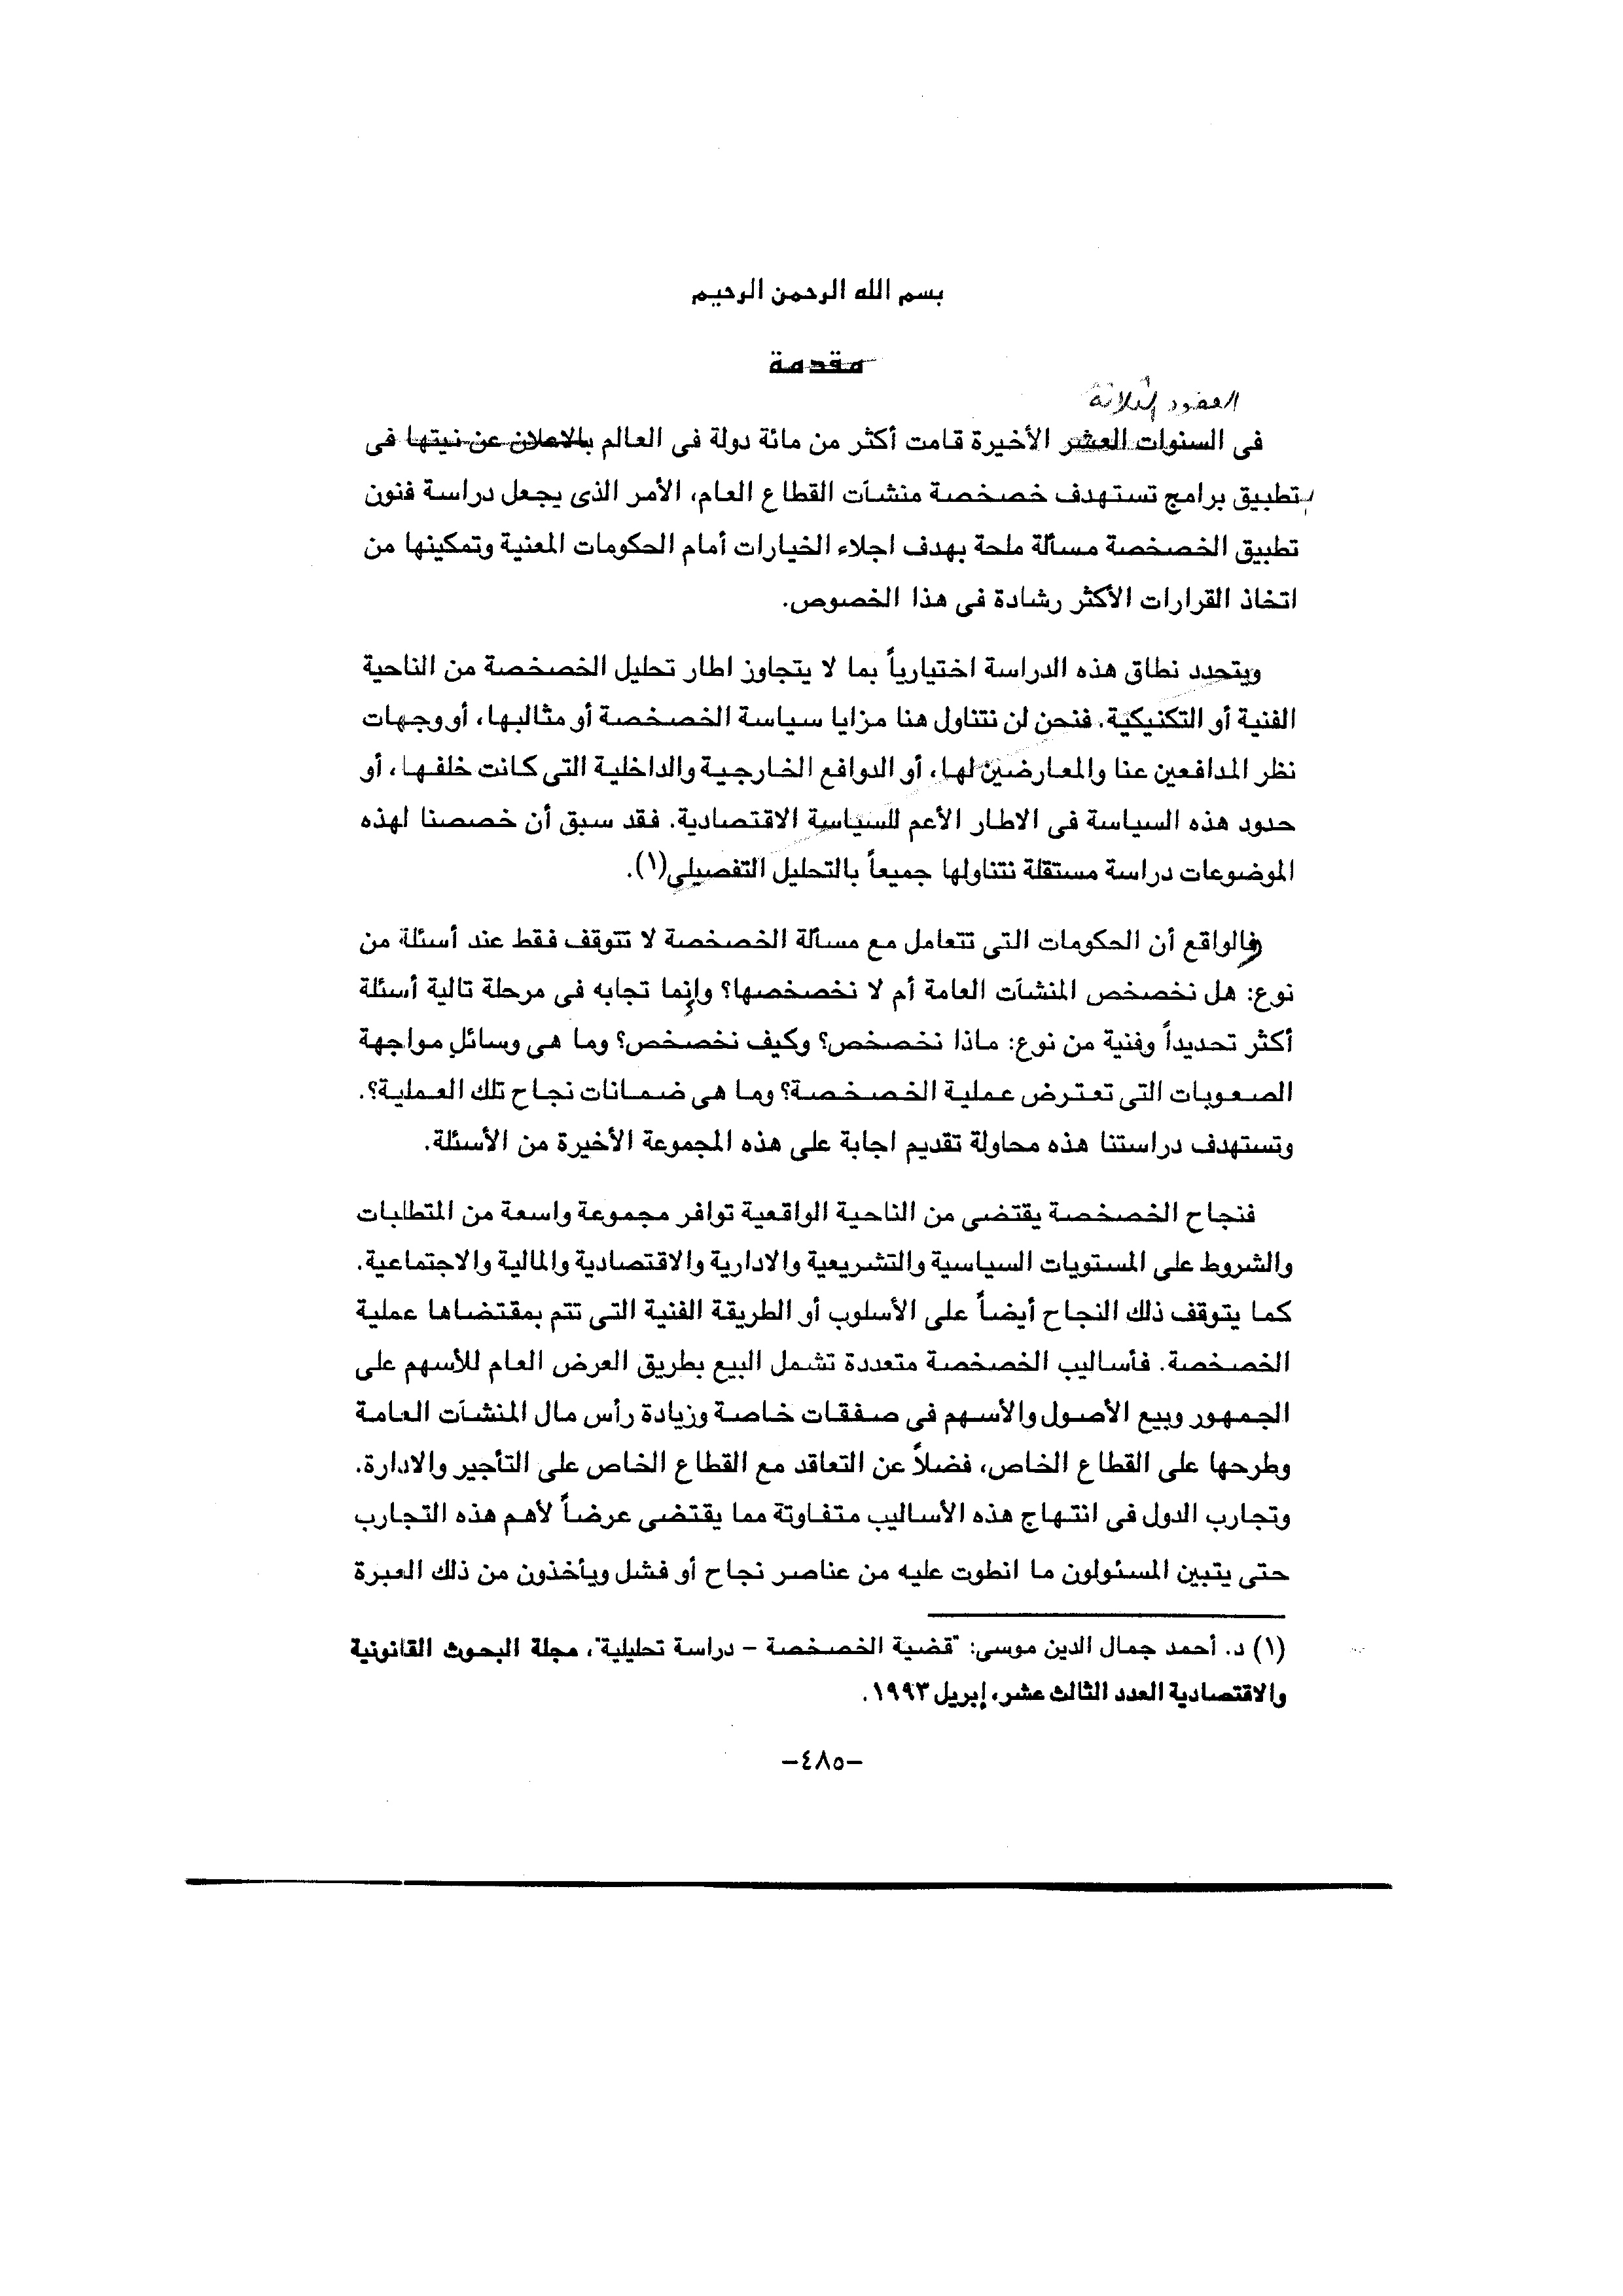 بسم الله الرحمن الرحيم
مقدمة
العقود الثلاثة
فى السنوات العشر الأخيرة قامت أكثر من مائة دولة فى العالم بالاعلان عن نيتها فى
تطبيق برامج تستهدف خصخصة منشآت القطاع العام، الأمر الذى يجعل دراسة فنون
تطبيق الخصخصة مسألة ملحة بهدف اجلاء الخيارات أمام الحكومات المعنية وتمكينها من
اتخاذ القرارات الأكثر رشادة فى هذا الخصوص.
ويتحدد نطاق هذه الدراسة اختيارياً بما لا يتجاوز اطار تحليل الخصخصة من الناحية
الفنية أو التكنيكية. فنحن لن نتناول هنا مزايا سياسة الخصخصة أو مثالبها، أو وجهات
نظر المدافعين عنا والمعارضين لها، أو الدوافع الخارجية والداخلية التى كانت خلفها، أو
حدود هذه السياسة فى الاطار الأعم للسياسة الاقتصادية. فقد سبق أن خصصنا لهذه
الموضوعات دراسة مستقلة نتناولها جميعاً بالتحليل التفصيلي(١).
فالواقع أن الحكومات التى تتعامل مع مسألة الخصخصة لا تتوقف فقط عند أسئلة من
نوع: هل نخصخص المنشآت العامة أم لا نخصخصها؟ وإنما تجابه فى مرحلة تالية أسئلة
أكثر تحديداً وفنية من نوع: ماذا نخصخص؟ وكيف نخصخص؟ وما هى وسائل مواجهة
الصعوبات التى تعترض عملية الخصخصة؟ وما هى ضمانات نجاح تلك العملية؟.
وتستهدف دراستنا هذه محاولة تقديم اجابة على هذه المجموعة الأخيرة من الأسئلة.
فنجاح الخصخصة يقتضى من الناحية الواقعية توافر مجموعة واسعة من المتطلبات
والشروط على المستويات السياسية والتشريعية والادارية والاقتصادية والمالية والاجتماعية.
كما يتوقف ذلك النجاح أيضاً على الأسلوب أو الطريقة الفنية التى تتم بمقتضاها عملية
الخصخصة. فأساليب الخصخصة متعددة تشمل البيع بطريق العرض العام للأسهم على
الجمهور وبيع الأصول والأسهم فى صفقات خاصة وزيادة رأس مال المنشآت العامة
وطرحها على القطاع الخاص، فضلاً عن التعاقد مع القطاع الخاص على التأجير والادارة.
وتجارب الدول فى انتهاج هذه الأساليب متفاوتة مما يقتضى عرضاً لأهم هذه التجارب
حتى يتبين المسئولون ما انطوت عليه من عناصر نجاح أو فشل ويأخذون من ذلك العبرة
(١) د. أحمد جمال الدين موسى: "قضية الخصخصة – دراسة تحليلية"، مجلة البحوث القانونية
والاقتصادية العدد الثالث عشر، إبريل ١٩٩٣.
–٤٨٥–